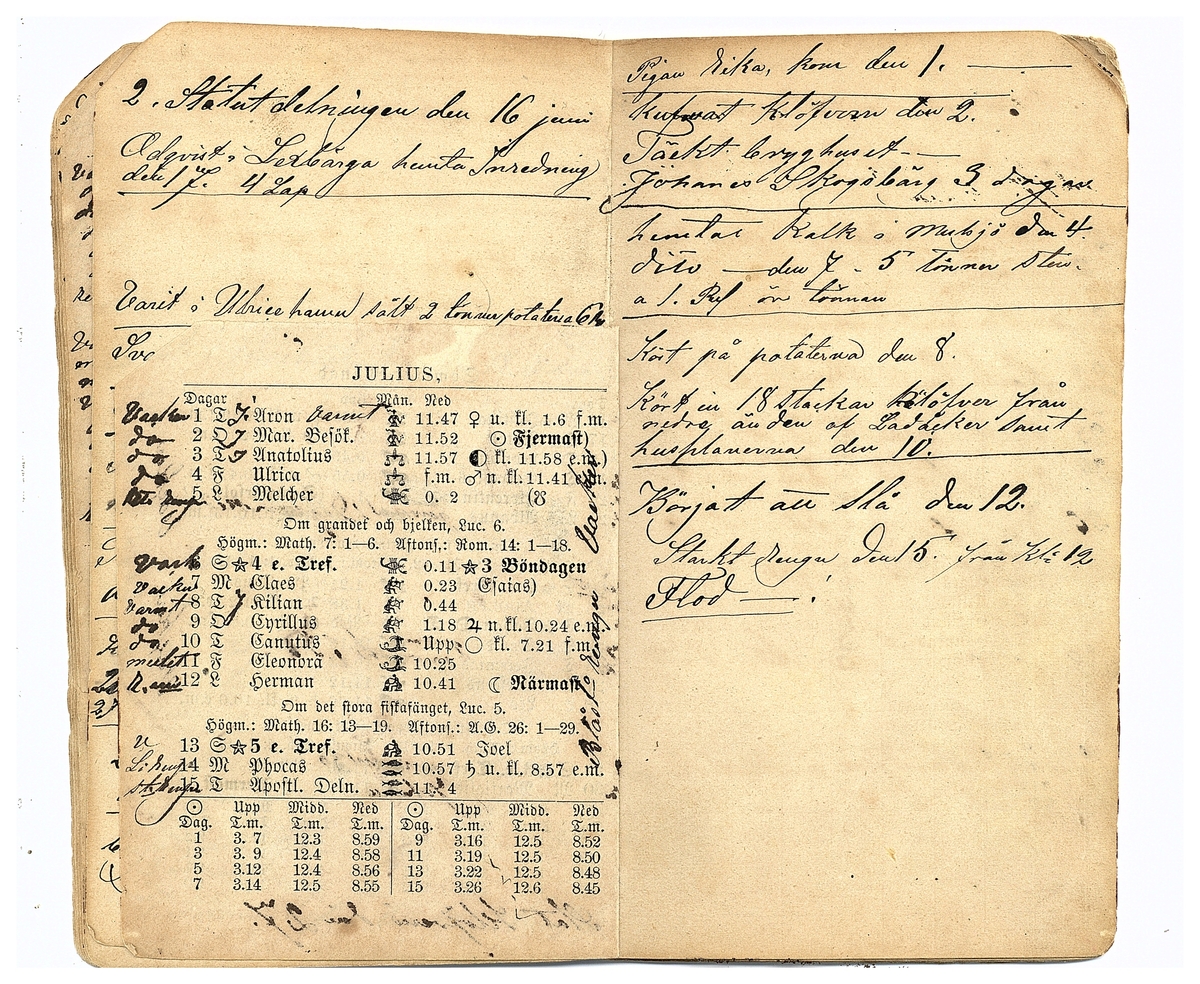 2. Statut delningen den 16 juni
Odqvist i Lexbärga hemta Inredning
den 17. 4 Lap
Varit i Ulricehamn sålt 2 tönner potaterna 6 kr
Sve
JULIUS,
Dagar Mån. Ned
Vacker 1 T Aron varmt 11.47 ♀ u. kl. 1.6 f.m.
do 2 O Mar. Besök. 11.52 ☉ Fjermast)
do 3 T Anatolius 11.57 ◐ kl. 11.58 e.m.)
do 4 F Ulrica f.m. ♂ n. kl. 11.41
5 L Melcher 0. 2 (☋
Om grandet och bjelken, Luc. 6.
Högm.: Math. 7: 1—6. Aftons.: Rom. 14: 1—18.
S ☆ 4 e. Tref. 0.11 ☆ 3 Böndagen
vacker 7 M Claes 0.23 Esaias)
varmt 8 T Kilian 0.44
do 9 O Cyrillus 1.18 ♃ n. kl. 10.24 e.m.
do 10 T Canutus Upp ○ kl. 7.21 f.m.
mulet 11 F Eleonora 10.25
12 L Herman 10.41 ☾ Närmast
Om det stora fiskafänget, Luc. 5.
Högm.: Math. 16: 13—19. Aftons.: A.G. 26: 1—29.
13 S ☆ 5 e. Tref. 10.51 Joel
14 M Phocas 10.57 ♄ u. kl. 8.57 e.m.
15 T Apostl. Deln. 11. 4
Vacker
Blåst Rengn
☉ Upp Midd. Ned ☉ Upp Midd. Ned
Dag. T.m. T.m. T.m. Dag. T.m. T.m. T.m.
1 3. 7 12.3 8.59 9 3.16 12.5 8.52
3 3. 9 12.4 8.58 11 3.19 12.5 8.50
5 3.12 12.4 8.56 13 3.22 12.5 8.48
7 3.14 12.5 8.55 15 3.26 12.6 8.45
Pigan Erika, kom den 1.
Klöfvern den 2.
Täckt brygghuset —
Johanes Skogsbärg 3 dagar
hemtat Kalk i den 4.
dito — den 7 - 5 tönner sten.
a 1. Rd ör tönnan
Kört på potaterna den 8.
Kört in 18 stackar klöfver från
nedre änden af Ladåcker samt
husplanerna den 10.
Börjat att slå den 12.
Starkt Rengn den 15. från Kl: 12
Flod — !